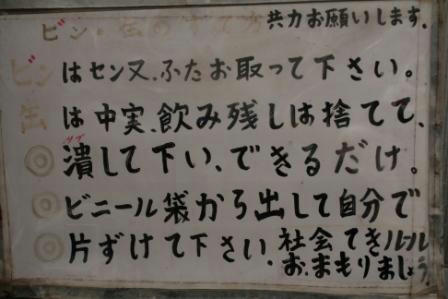 ビン・缶のすて方 共力お願いします.
ビンはセン又、ふたお取って下さい。
缶は中実、飲み残しは捨てて、
◎潰して下い、できるだけ。
ツブ
◎ビニール袋から出して自分で
◎片ずけて下さい. 社会てきルール
お、まもりましょう